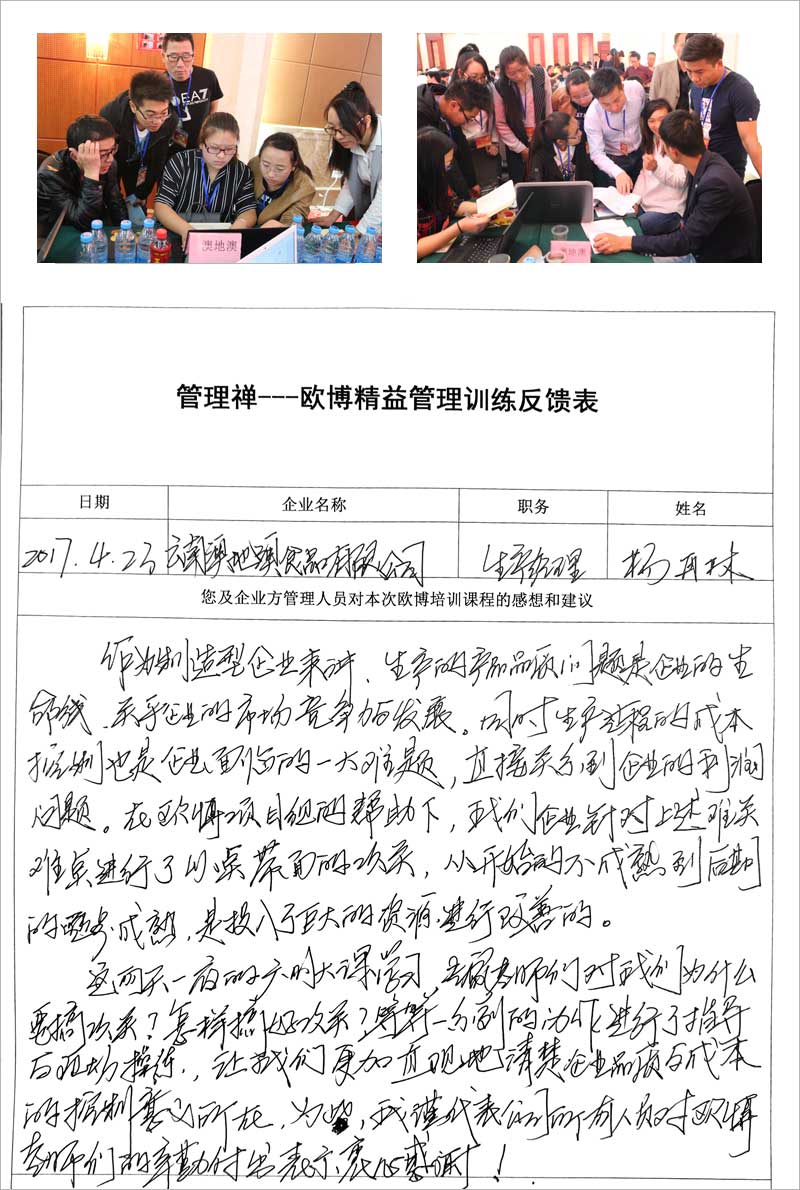 EA7
澳地澳
澳地澳
管理禅---欧博精益管理训练反馈表
日期 企业名称 职务 姓名
2017.4.23 云南澳地澳食品有限公司 生产经理 杨再林
您及企业方管理人员对本次欧博培训课程的感想和建议
作为制造型企业来讲、生产的产品品质问题是企业的生
命线、关乎企业的市场竞争力与发展。同时生产过程的成本
控制也是企业面临的一大难题,直接关系到企业的利润
问题。在欧博项目组的帮助下,我们企业针对上述难关
难点进行了以点带面的攻关,从开始的不成熟到后期
的逐步成熟,是投入了巨大的资源进行改善的。
这四天一夜的大课学习 老师们对我们为什么
要搞攻关?怎样搞好攻关?等等一系列的动作进行了指导
与现场操练,让我们更加直观地清楚企业品质与成本
的控制重心所在,为此,我谨代表公司所有人员对欧博
老师们的辛勤付出表示衷心感谢!